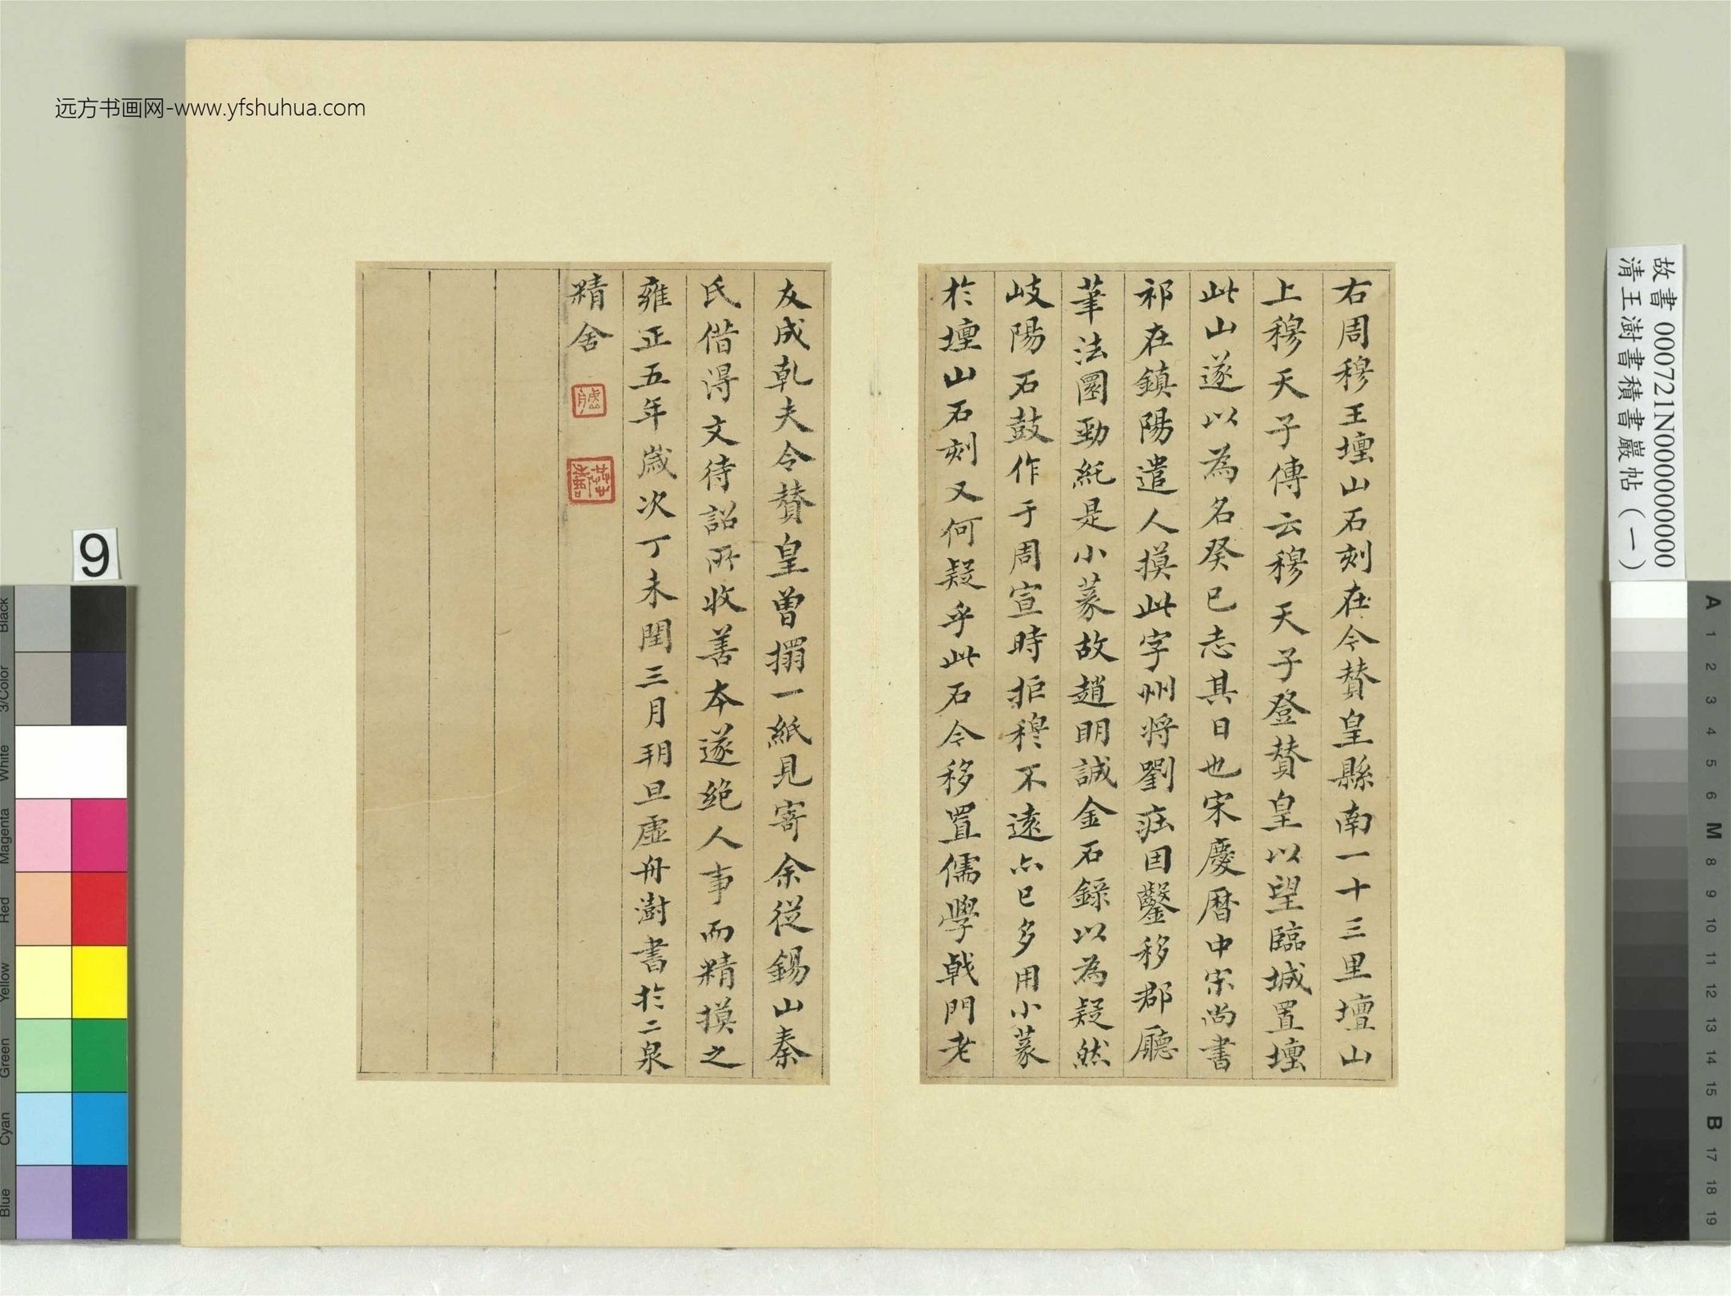 右周穆王壇山石刻在今贊皇縣南一十三里壇山
上穆天子傳云穆天子登贊皇以望臨城置壇
此山遂以為名癸巳志其日也宋慶曆中宋尚書
祁在鎮陽遣人摸此字州將劉莊因鑿移郡廳
筆法圜勁純是小篆故趙明誠金石錄以為疑然
岐陽石鼓作于周宣時拒穆不遠亦已多用小篆
於壇山石刻又何疑乎此石今移置儒學戟門老
友成乾夫令贊皇曾搨一紙見寄余従錫山秦
氏借淂文待詔所收善本遂絶人事而精摸之
雍正五年歲次丁未閏三月朔旦虛舟澍書於二泉
精舍
远方书画网-www.yfshuhua.com
故書 000721N000000000
清王澍書積書巖帖（一）
9
Black
3/Color
White
Magenta
Red
Yellow
Green
Cyan
Blue
A
1
2
3
4
5
6
M
8
9
10
11
12
13
14
15
B
17
18
19